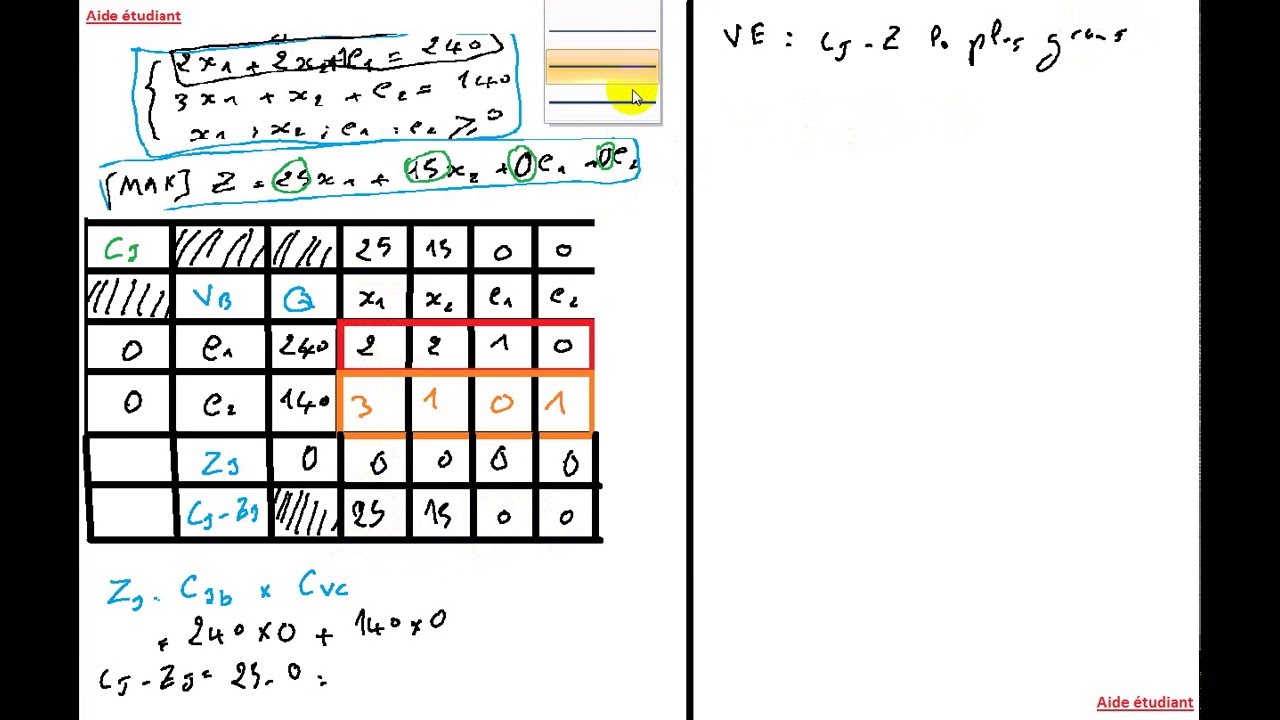 Aide étudiant
2x1 + 2x2 + 1e1 = 240
3x1 + x2 + e2 = 140
x1 ; x2 ; e1 ; e2 ⩾ 0
[MAX] Z = 25x1 + 15x2 + 0e1 + 0e2
Cj 25 15 0 0
VB Q x1 x2 e1 e2
0 e1 240 2 2 1 0
0 e2 140 3 1 0 1
Zj 0 0 0 0 0
Cj - Zj 25 15 0 0
Zj = Cjb × Cvc
= 240 × 0 + 140 × 0
Cj - Zj = 25 - 0 =
VE : Cj - Z plus grand
Aide étudiant